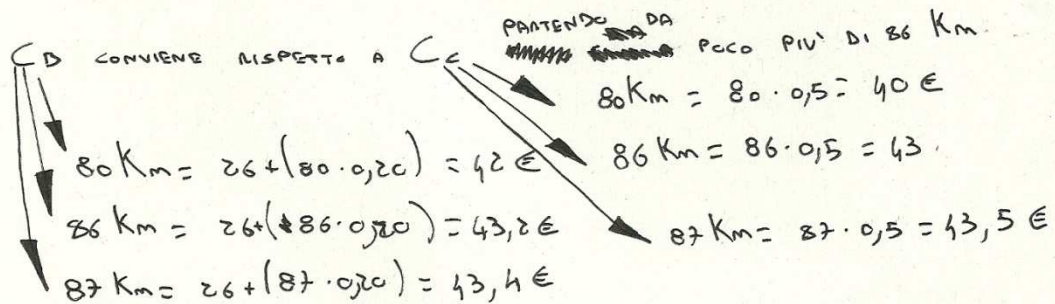 C_B CONVIENE RISPETTO A C_C PARTENDO DA POCO PIU' DI 86 Km.
80 Km = 80 · 0,5 = 40 €
80 Km = 26 + (80 · 0,20) = 42 €
86 Km = 86 · 0,5 = 43.
86 Km = 26 + (86 · 0,20) = 43,2 €
87 Km = 87 · 0,5 = 43,5 €
87 Km = 26 + (87 · 0,20) = 43,4 €